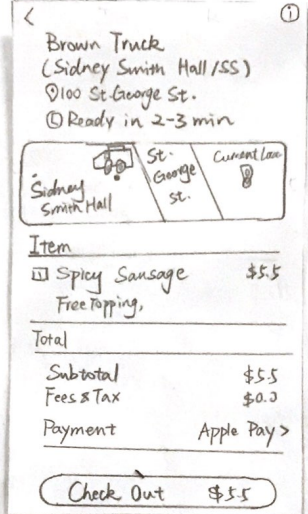 <
Brown Truck
(Sidney Smith Hall/SS)
100 St. George St.
Ready in 2-3 min
Sidney Smith Hall
St. George St.
Item
1 Spicy Sausage $5.5
Free Topping,
Total
Subtotal $5.5
Fees & Tax $0.0
Payment Apple Pay >
Check Out $5.5